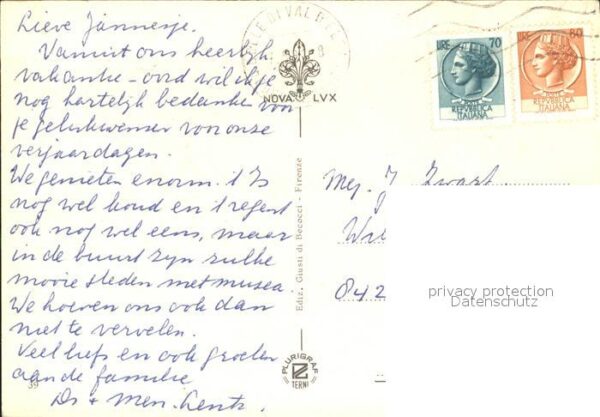 Lieve Jannesje.
Vanuit ons heerlijk
vakantie-oord wil ikje
nog hartelijk bedanken voor
je gelukwensen voor onze
verjaardagen.
We genieten enorm. 't Is
nog wel koud en 't regent
ook nog wel eens, maar
in de buurt zijn zulke
mooie steden met musea.
We hoeven ons ook dan
niet te vervelen.
Veel liefs en ook groeten
aan de familie
Ds + Mevr.
39
NOVA LVX
LIRE 70
REPVBBLICA
ITALIANA
LIRE 80
REPVBBLICA
ITALIANA
Ediz. Giusti di Becocci - Firenze
PLURIGRAF
TERNI
Mej. J. Zwart
042
privacy protection
Datenschutz